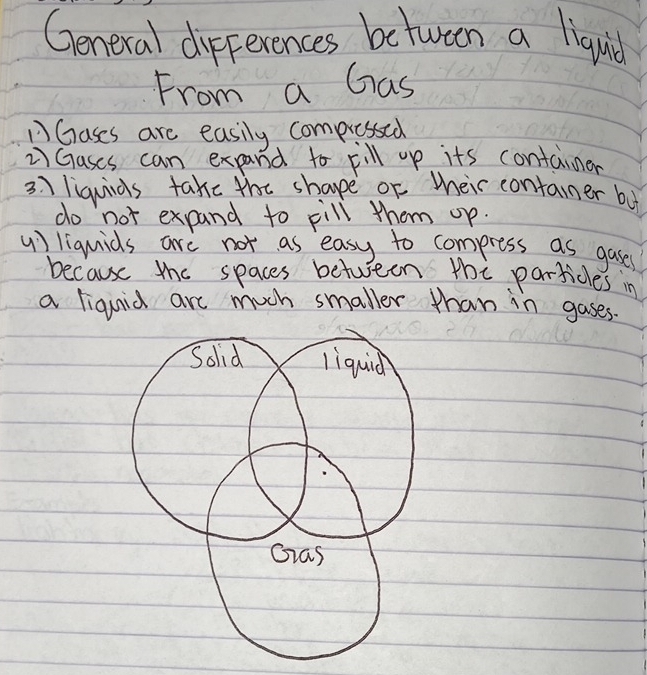 General differences between a liquid
From a Gas
1.) Gases are easily compressed
2) Gases can expand to fill up its container
3.) liquids take the shape of their container but
do not expand to fill them up.
4.) liquids are not as easy to compress as gases
because the spaces between the particles in
a liquid are much smaller than in gases.
Solid
liquid
Gas